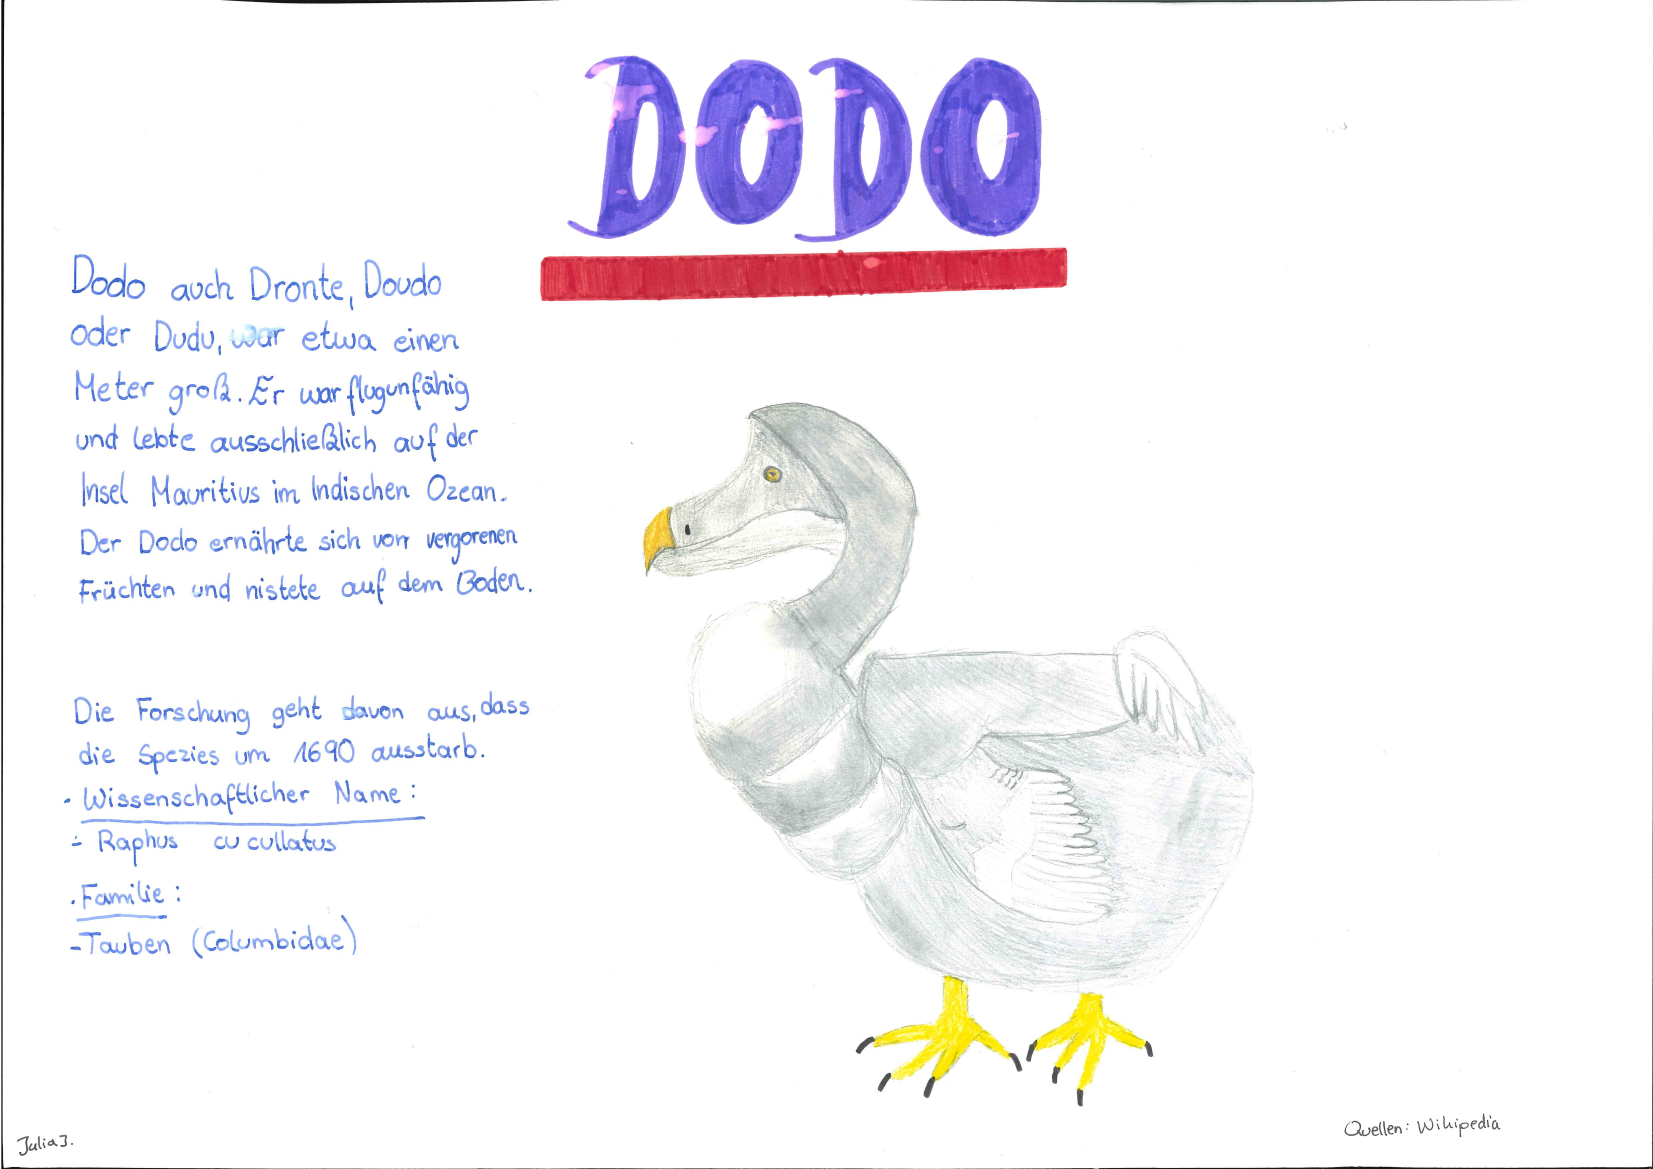 DODO
Dodo auch Dronte, Doudo
oder Dudu, war etwa einen
Meter groß. Er war flugunfähig
und lebte ausschließlich auf der
Insel Mauritius im Indischen Ozean.
Der Dodo ernährte sich von vergorenen
Früchten und nistete auf dem Boden.
Die Forschung geht davon aus, dass
die Spezies um 1690 ausstarb.
· Wissenschaftlicher Name:
- Raphus cucullatus
· Familie:
- Tauben (Columbidae)
Julia J.
Quellen: Wikipedia